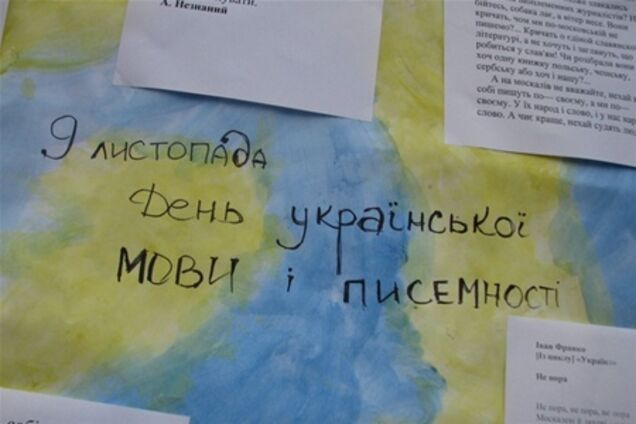 кувати.
А. Незнаний
бійтесь, собака лає, а вітер несе. Вони
кричать, чом ми по-московській не
пишемо?... Кричать о єдиной славянской
літературі, а не хотять і заглянуть, що
робиться у слав'ян! Чи розібрали вони
хоч одну книжку польську, чеську,
сербську або хоч і нашу?...
А на москалів не вважайте, нехай
собі пишуть по— своєму, а ми по—
своєму. У їх народ і слово, і у нас
слово. А чиє краще, нехай судять
9 листопада
День української
мови і писемності
Іван Франко
[Із циклу] «Україна»
Не пора
Не пора, не пора, не пора